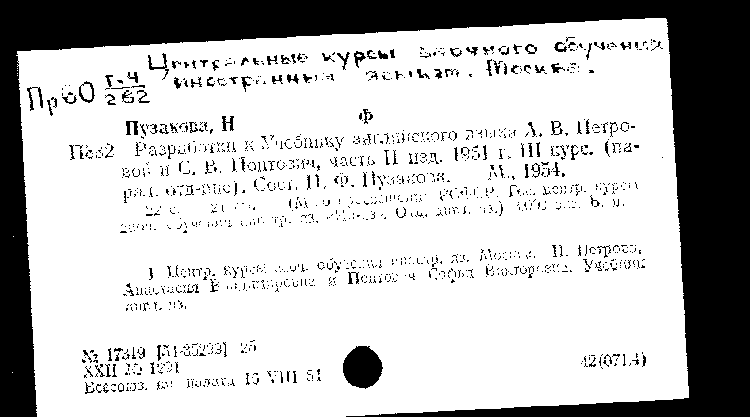 Центральные курсы заочного обучения
иностранным языкам. Москва.
Пр60 Г-4/262
Пузакова, Н Ф
П882 Разработки к Учебнику английского языка А. В. Петро-
вой и С. В. Понтович, часть II изд. 1951 г. III курс. (па-
рал. отд-ние). Сост. Н. Ф. Пузакова. М., 1954.
22 с. 21 см. (М-во просвещения РСФСР. Гос. центр. курсы
заоч. обучения иностр. яз. «Ин-яз». Отд. англ. яз.) б. ц.
1 Центр. курсы заоч. обучения иностр. яз. Москва. II Петрова,
Анастасия Владимировна и Понтович Софья Викторовна. Учебник
англ. яз.
№ 17319 25
XXII 1291
Всесоюз. кн. палата 16 VIII 54
42(071.4)